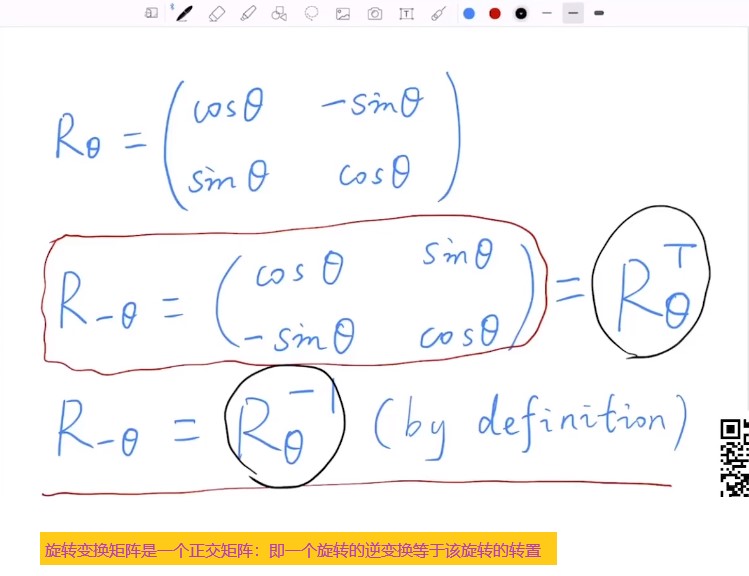 R_θ = ( cosθ -sinθ
sinθ cosθ )
R_{-θ} = ( cosθ sinθ
-sinθ cosθ ) = R_θ^T
R_{-θ} = R_θ^{-1} (by definition)
旋转变换矩阵是一个正交矩阵：即一个旋转的逆变换等于该旋转的转置